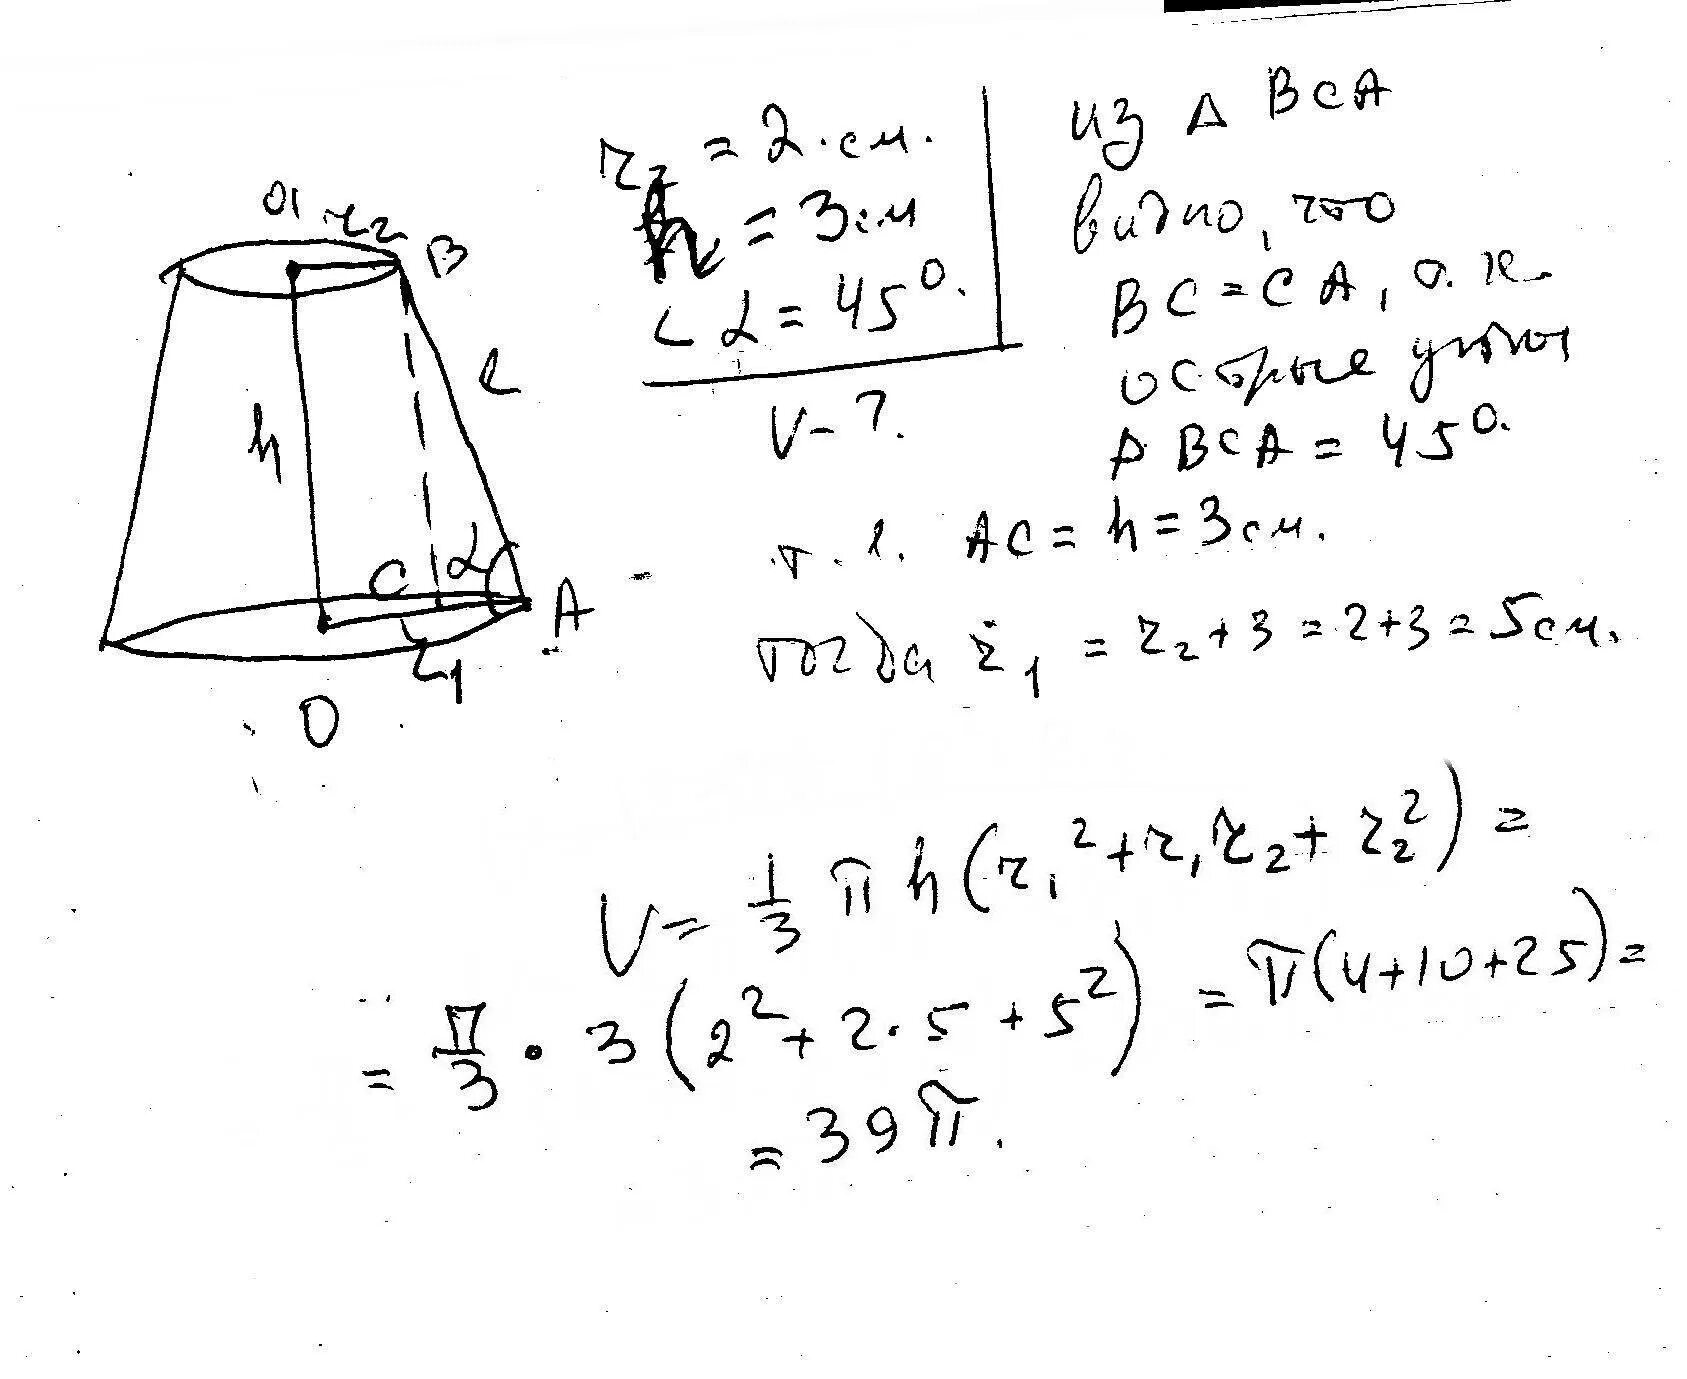 O1 r₂ B
h
l
C α A
r₁
O
r₂ = 2 см.
h = 3 см
∠ α = 45⁰.
V - ?
из Δ BCA
видно, что
BC = CA, т.к.
острые углы
Δ BCA = 45⁰.
т.е. AC = h = 3 см.
тогда r₁ = r₂ + 3 = 2 + 3 = 5 см.
V = 1/3 π h (r₁² + r₁ r₂ + r₂²) =
= π/3 · 3 (2² + 2 · 5 + 5²) = π (4 + 10 + 25) =
= 39 π.